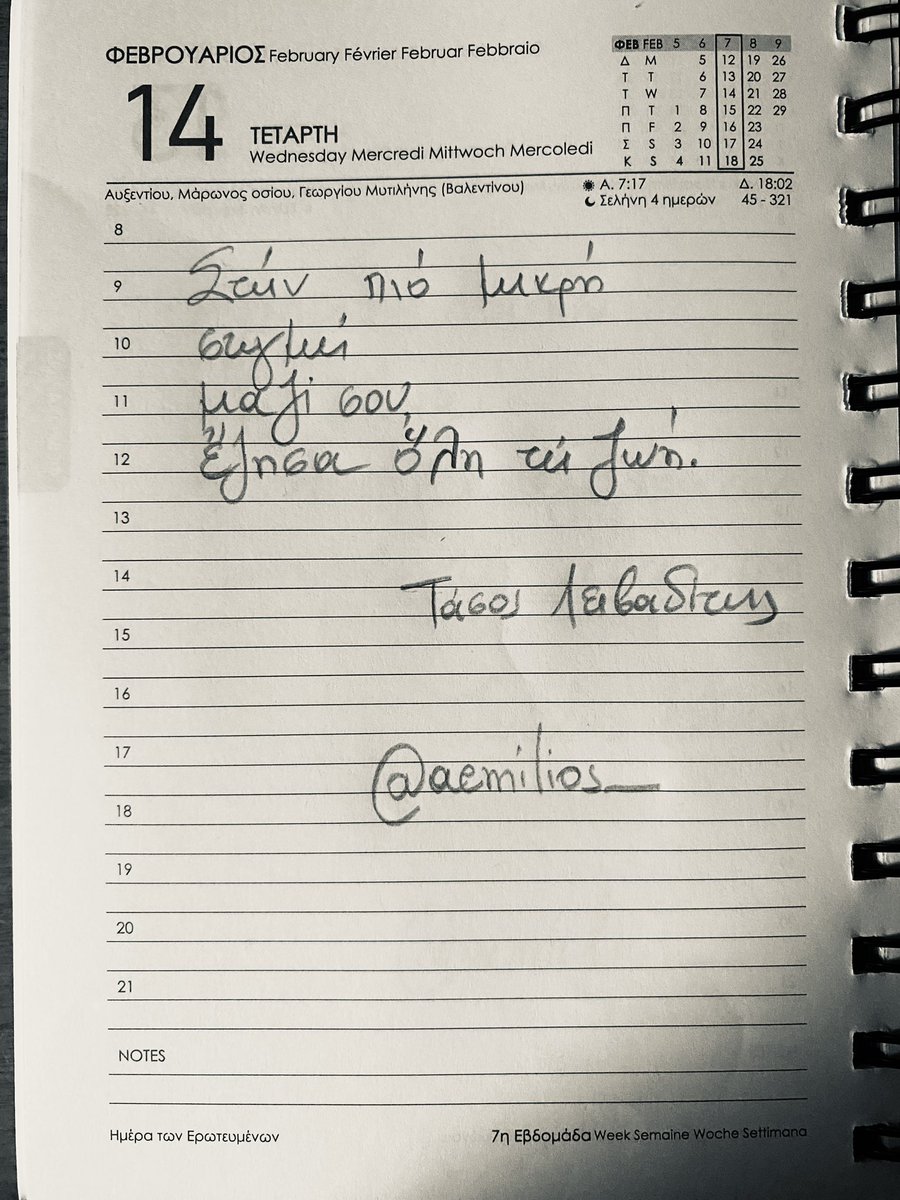 ΦΕΒΡΟΥΑΡΙΟΣ February Février Februar Febbraio
14
ΤΕΤΑΡΤΗ
Wednesday Mercredi Mittwoch Mercoledi
ΦΕΒ FEB 5 6 7 8 9
Δ M 5 12 19 26
Τ T 6 13 20 27
Τ W 7 14 21 28
Π T 1 8 15 22 29
Π F 2 9 16 23
Σ S 3 10 17 24
Κ S 4 11 18 25
Αυξεντίου, Μάρωνος οσίου, Γεωργίου Μυτιλήνης (Βαλεντίνου)
Α. 7:17 Δ. 18:02
Σελήνη 4 ημερών 45 - 321
8
9 Στήν πιό μικρή
10 στιγμή
11 μαζί σου,
12 ἔζησα ὅλη τή ζωή.
13
14 Τάσος Λειβαδίτης
15
16
17 @aemilios_
18
19
20
21
NOTES
Ημέρα των Ερωτευμένων 7η Εβδομάδα Week Semaine Woche Settimana